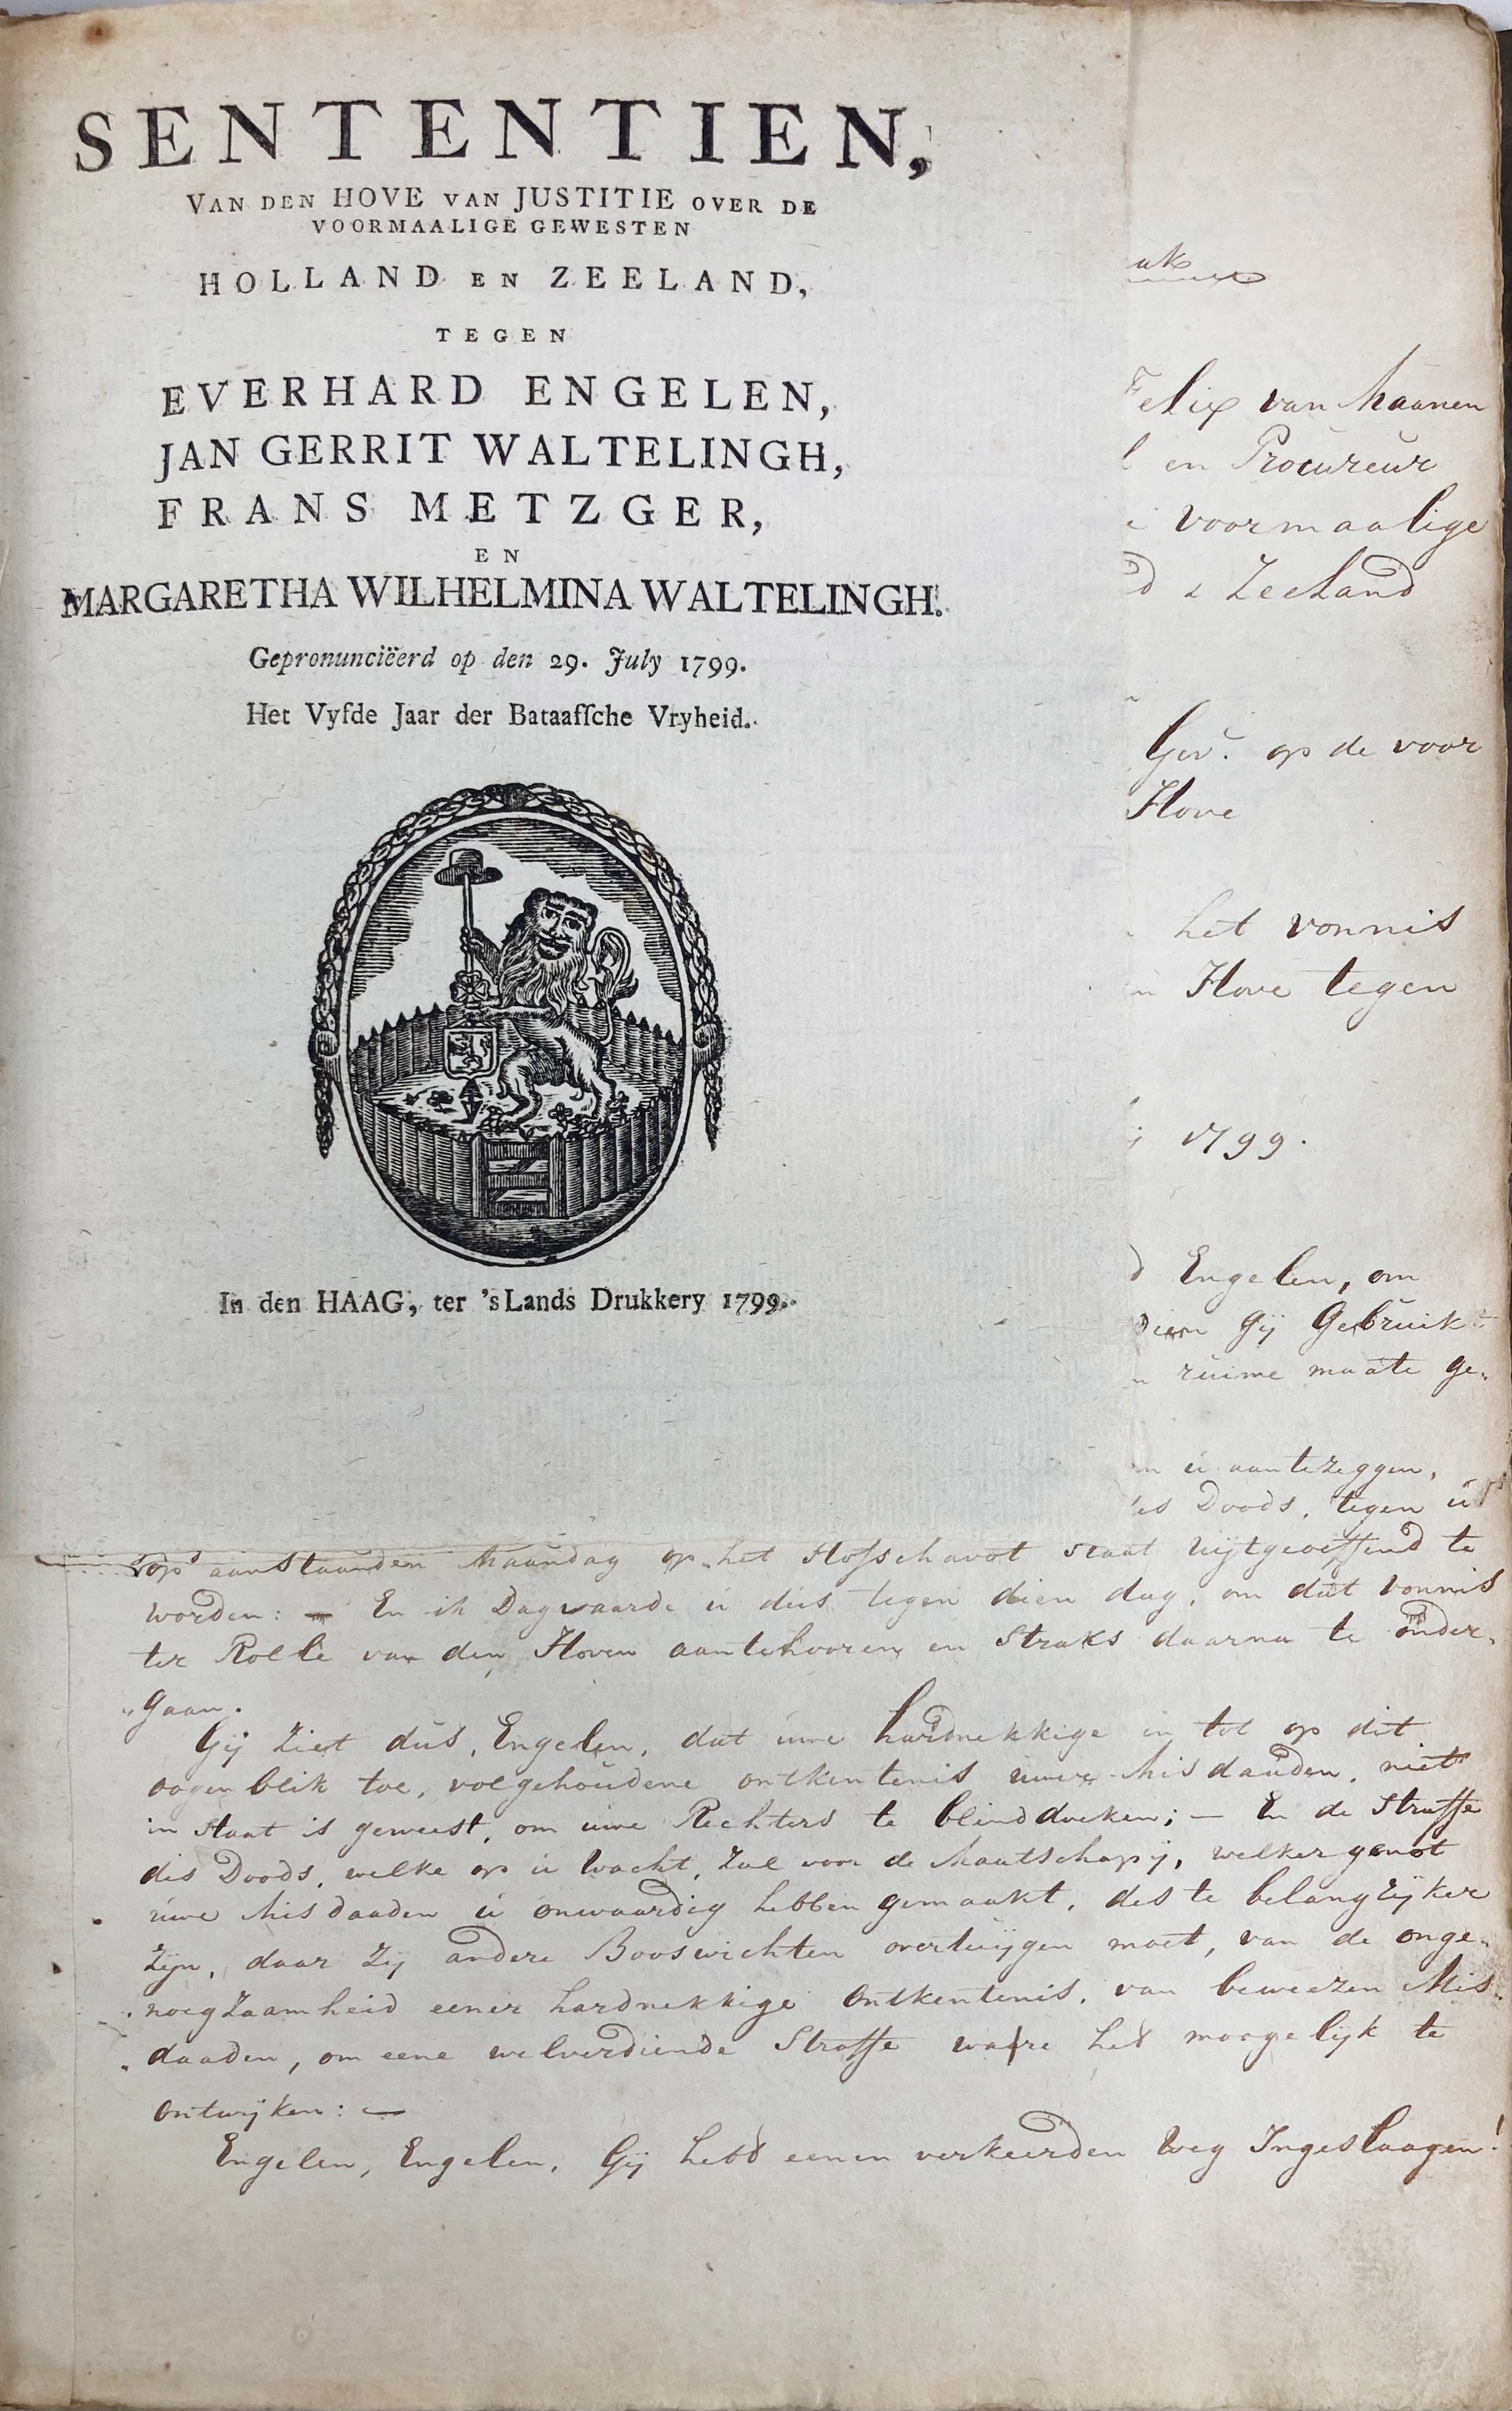 SENTENTIEN,
VAN DEN HOVE VAN JUSTITIE OVER DE
VOORMAALIGE GEWESTEN
HOLLAND EN ZEELAND,
TEGEN
EVERHARD ENGELEN,
JAN GERRIT WALTELINGH,
FRANS METZGER,
EN
MARGARETHA WILHELMINA WALTELINGH.
Gepronunciëerd op den 29. July 1799.
Het Vyfde Jaar der Bataafſche Vryheid.
In den HAAG, ter 'sLands Drukkery 1799.
Felix van Maanen
l en Procureur
voormaalige
d & Zeeland
Gev. op de voor
Hove
het vonnis
n Hove tegen
1799.
d Engelen, om
dien gij Gebruik
n ruime maate ge„
u aantezeggen,
des Doods, tegen u
op aanstaanden Maandag op het Hofschavot staat uijtgeoeffend te
worden: — En ik Dagvaarde u dus tegen dien dag, om dat vonnis
ter Rolle van den Hoven aantehooren en Straks daarna te onder„
„gaan.
Gij Ziet dus, Engelen, dat uwe hardnekkige en tot op dit
oogenblik toe, volgehoudene ontkentenis uwer Misdaaden, niet
in staat is geweest, om uwe Rechters te blinddoeken; — En de Straffe
des Doods, welke op u wacht, Zal voor de Maatschapij, welker genot
uwe Misdaaden u onwaardig hebben gemaakt, des te belangrijker
Zijn, daar Zij andere Booswichten overtuijgen moet, van de onge„
noegzaamheid eener hardnekkige Ontkentenis, van beweezen Mis„
daaden, om eene welverdiende Straffe ware het moogelijk te
ontwijken: —
Engelen, Engelen, Gij hebt eenen verkeerden weg Ingeslaagen!